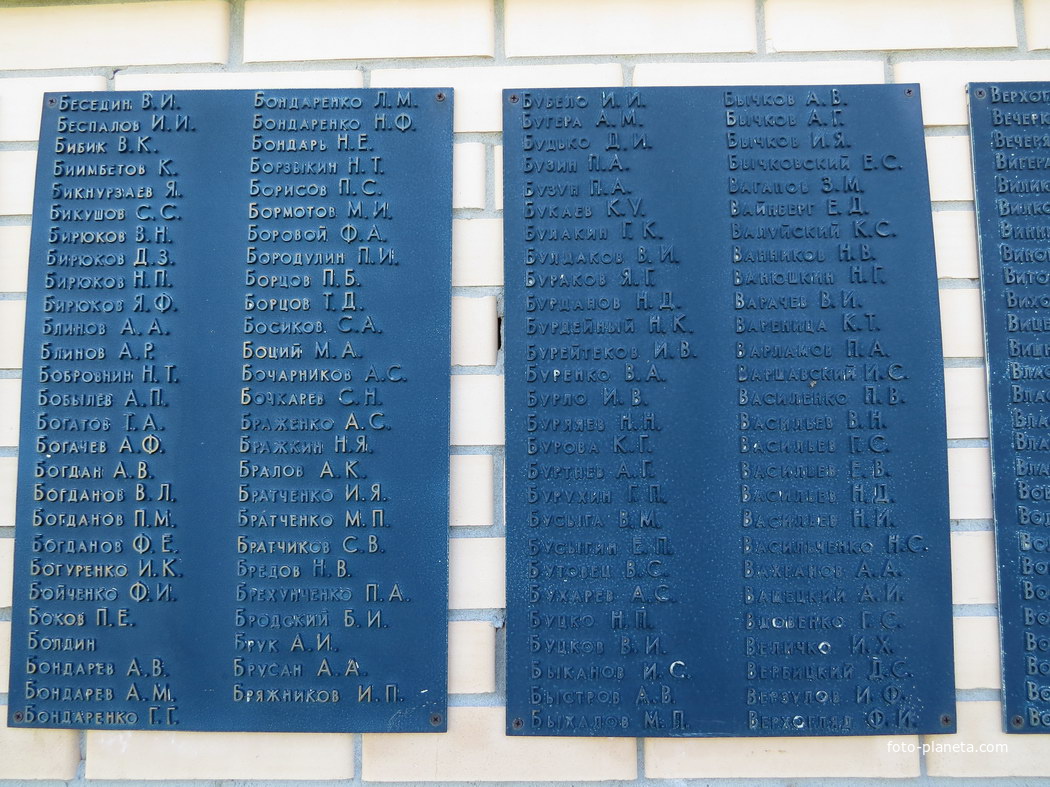 Беседин В.И.
Беспалов И.И.
Бибик В.К.
Биимбетов К.
Бикнурзаев Я.
Бикушов С.С.
Бирюков З.Н.
Бирюков Д.З.
Бирюков Н.П.
Бирюков Я.Ф.
Блинов А.А.
Блинов А.Р.
Бобровнин Н.Т.
Бобылев А.П.
Богатов Т.А.
Богачев А.Ф.
Богдан А.В.
Богданов В.Л.
Богданов П.М.
Богданов Ф.Е.
Богуренко И.К.
Бойченко Ф.И.
Боков П.Е.
Болдин
Бондарев А.В.
Бондарев А.М.
Бондаренко Г.Г.
Бондаренко Л.М.
Бондаренко Н.Ф.
Бондарь Н.Е.
Борзыкин Н.Т.
Борисов П.С.
Бормотов М.И.
Боровой Ф.А.
Бородулин П.И.
Борцов П.Б.
Борцов Т.Д.
Босиков С.А.
Боций М.А.
Бочарников А.С.
Бочкарев С.Н.
Браженко А.С.
Бражкин Н.Я.
Бралов А.К.
Братченко И.Я.
Братченко М.П.
Братчиков С.В.
Бредов Н.В.
Брехунченко П.А.
Бродский Б.И.
Брук А.И.
Брусан А.А.
Бряжников И.П.
Бубело И.И.
Бугера А.М.
Будько Д.И.
Бузин П.А.
Бузун П.А.
Букаев К.У.
Булакин Г.К.
Булдаков В.И.
Бураков Я.Г.
Бурданов Н.Д.
Бурдейный Н.К.
Бурейтеков И.В.
Буренко В.А.
Бурло И.В.
Бурлев Н.Н.
Бурова К.Г.
Буртнев А.Г.
Бурухин Г.П.
Бусыга В.М.
Бусыгин Е.П.
Буторец В.С.
Бухарев А.С.
Буцко Н.П.
Буцков В.И.
Быканов И.С.
Быстров А.В.
Быхалов М.П.
Бычков А.В.
Бычков А.Г.
Бычков И.Я.
Бычковский Е.С.
Вагапов З.М.
Вайнберг Е.Д.
Валуйский К.С.
Ванников Н.В.
Ванюшкин Н.Г.
Варачев В.И.
Вареница К.Т.
Варламов П.А.
Варшавский И.С.
Василенко П.В.
Васильев В.Н.
Васильев Г.С.
Васильев Е.В.
Васильев Н.Д.
Васильев Н.И.
Васильченко Н.С.
Вахранов А.А.
Вашецкий А.И.
Вдовенко Г.С.
Величко И.Х.
Вербицкий Д.С.
Верзулов И.Ф.
Верхогляд Ф.И.
foto-planeta.com